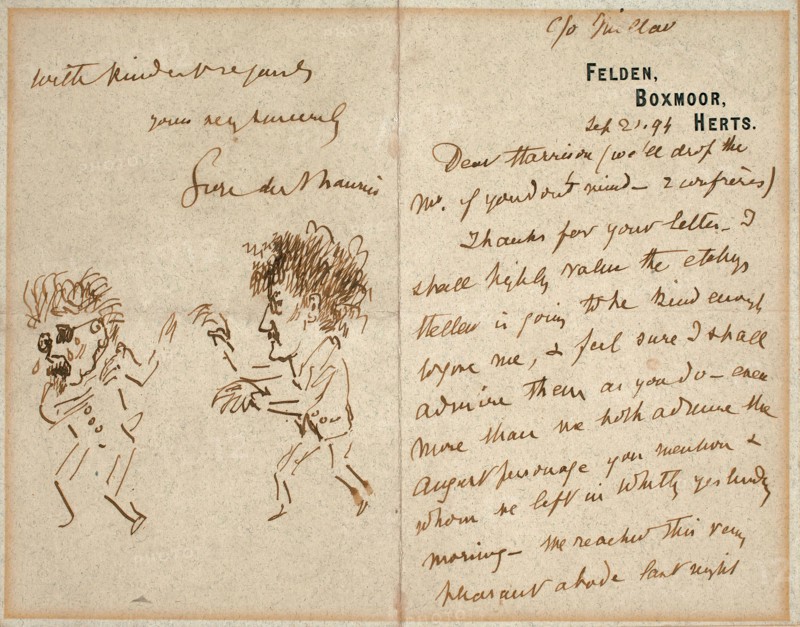 c/o
FELDEN,
BOXMOOR,
HERTS.
Sep 21. 94
Dear Harrison (we'll drop the
Mr. if you don't mind – 2 confrères)
Thanks for your letter – I
shall highly value the etchings
Helleu is going to be kind enough
to give me, & feel sure I shall
admire them as you do – even
more than we both admire the
august personage you mention &
whom we left in Whitby yesterday
morning – We reached this very
pleasant abode last night
With kindest regards
yours very sincerely
du Maurier